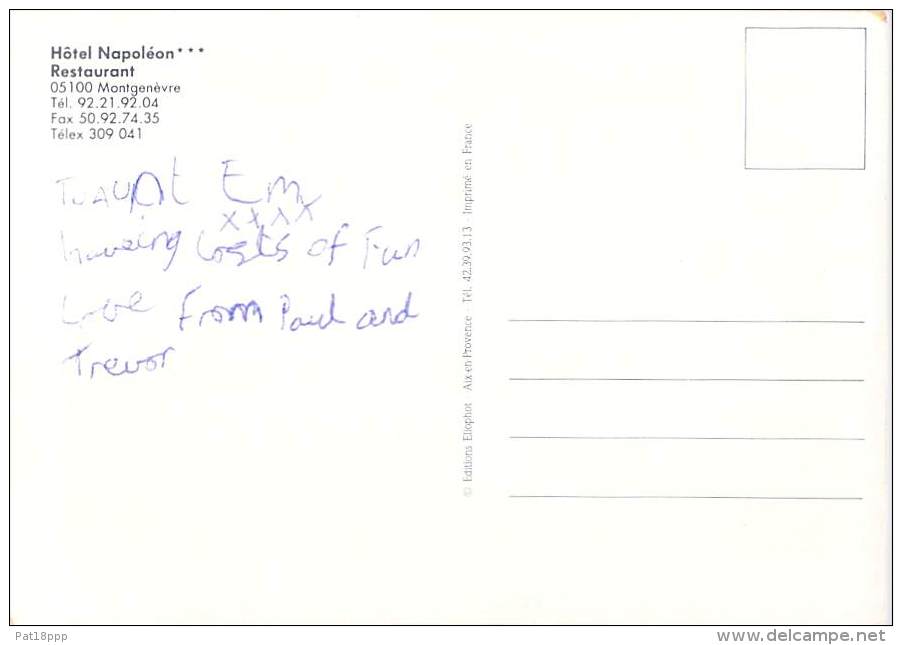 Hôtel Napoléon***
Restaurant
05100 Montgenèvre
Tél. 92.21.92.04
Fax 50.92.74.35
Télex 309 041
Em
xxxx
of Fun
Love From Paul and
Trevor
© Editions Ellophot - Aix-en-Provence - Tél. 42.39.93.13 - Imprimé en France
Pat18ppp
www.delcampe.net